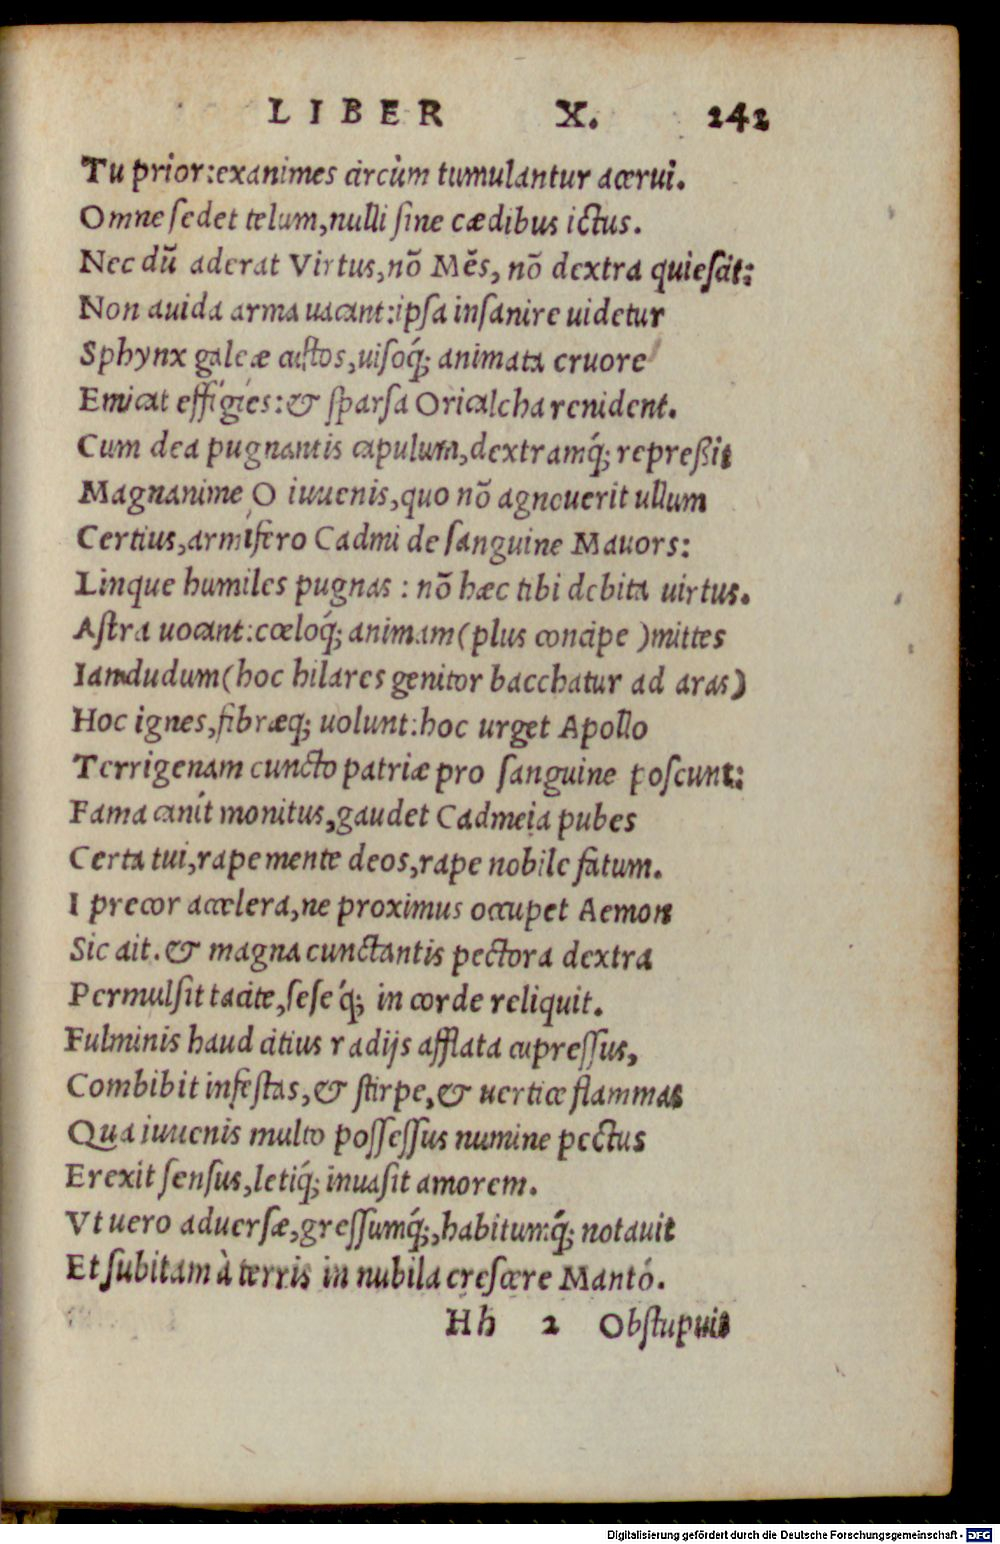 LIBER X. 242
Tu prior:exanimes circùm tumulantur acerui.
Omne sedet telum,nulli sine cædibus ictus.
Nec dũ aderat Virtus,nõ Mẽs, nõ dextra quiescit:
Non auida arma uacant:ipsa insanire uidetur
Sphynx galeæ custos,uisoq́; animata cruore
Emicat effigies:& sparsa Oricalcha renident.
Cum dea pugnantis capulum,dextramq́; repreßit
Magnanime O iuuenis,quo nõ agnouerit ullum
Certius,armifero Cadmi de sanguine Mauors:
Linque humiles pugnas : nõ hæc tibi debita uirtus.
Astra uocant:cœloq́; animam(plus concipe )mittes
Iamdudum(hoc hilares genitor bacchatur ad aras)
Hoc ignes,fibræq; uolunt:hoc urget Apollo
Terrigenam cuncto patriæ pro sanguine poscunt:
Fama canit monitus,gaudet Cadmeia pubes
Certa tui,rape mente deos,rape nobile fatum.
I precor accelera,ne proximus occupet Aemon
Sic ait. & magna cunctantis pectora dextra
Permulsit tacite,sese q́; in corde reliquit.
Fulminis haud citius radijs afflata cupressus,
Combibit infestas,& stirpe,& uertice flammas
Qua iuuenis multo possessus numine pectus
Erexit sensus,letiq́; inuasit amorem.
Vt uero aduersæ,gressumq́;,habitumq́; notauit
Et subitam à terris in nubila crescere Mantó.
Hh 2 Obstupuit
Digitalisierung gefördert durch die Deutsche Forschungsgemeinschaft - DFG